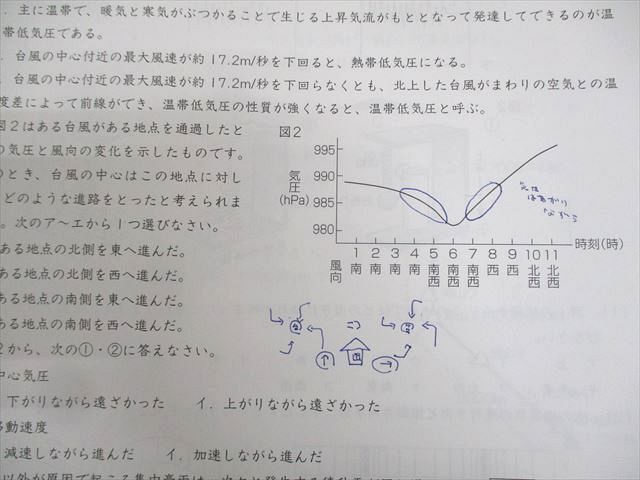 ．主に温帯で、暖気と寒気がぶつかることで生じる上昇気流がもととなって発達してできるのが温
帯低気圧である。
．台風の中心付近の最大風速が約17.2m/秒を下回ると、熱帯低気圧になる。
．台風の中心付近の最大風速が約17.2m/秒を下回らなくとも、北上した台風がまわりの空気との温
度差によって前線ができ、温帯低気圧の性質が強くなると、温帯低気圧と呼ぶ。
図2はある台風がある地点を通過したと
の気圧と風向の変化を示したものです。
のとき、台風の中心はこの地点に対し
どのような進路をとったと考えられま
。次のア～エから1つ選びなさい。
ある地点の北側を東へ進んだ。
ある地点の北側を西へ進んだ。
ある地点の南側を東へ進んだ。
ある地点の南側を西へ進んだ。
2から、次の①・②に答えなさい。
中心気圧
下がりながら遠ざかった　イ．上がりながら遠ざかった
移動速度
減速しながら進んだ　イ．加速しながら進んだ
図2
気圧
(hPa)
995
990
985
980
1 2 3 4 5 6 7 8 9 10 11 時刻(時)
風向 南 南 南 南 南西 南西 南西 西 西 北西 北西